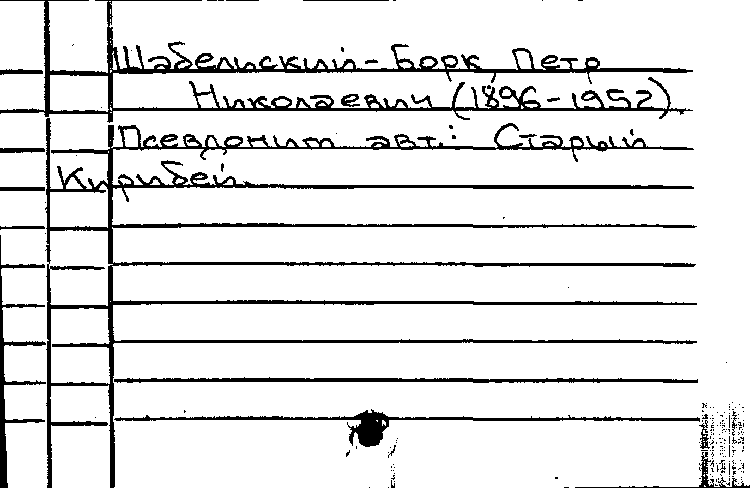 Шабельский-Борк, Петр
Николаевич (1896-1952).
Псевдоним авт.: Старый
Кирибей.